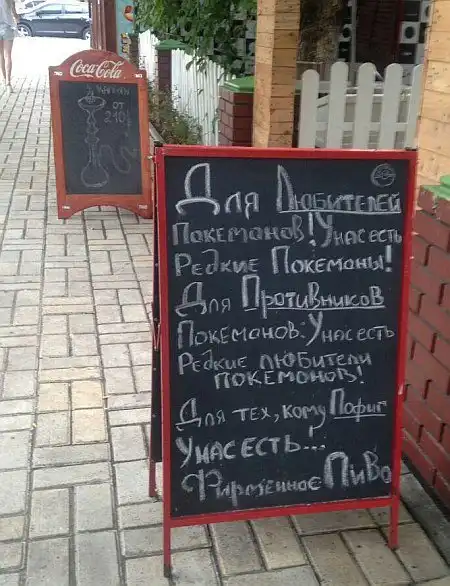 Coca-Cola
КАЛЬЯН
ОТ
210
Для Любителей
Покеманов! У нас есть
Редкие Покеманы!
Для Противников
Покеманов: У нас есть
Редкие любители
покемонов!
Для тех, кому Пофиг
У нас есть...
Фирменное Пиво